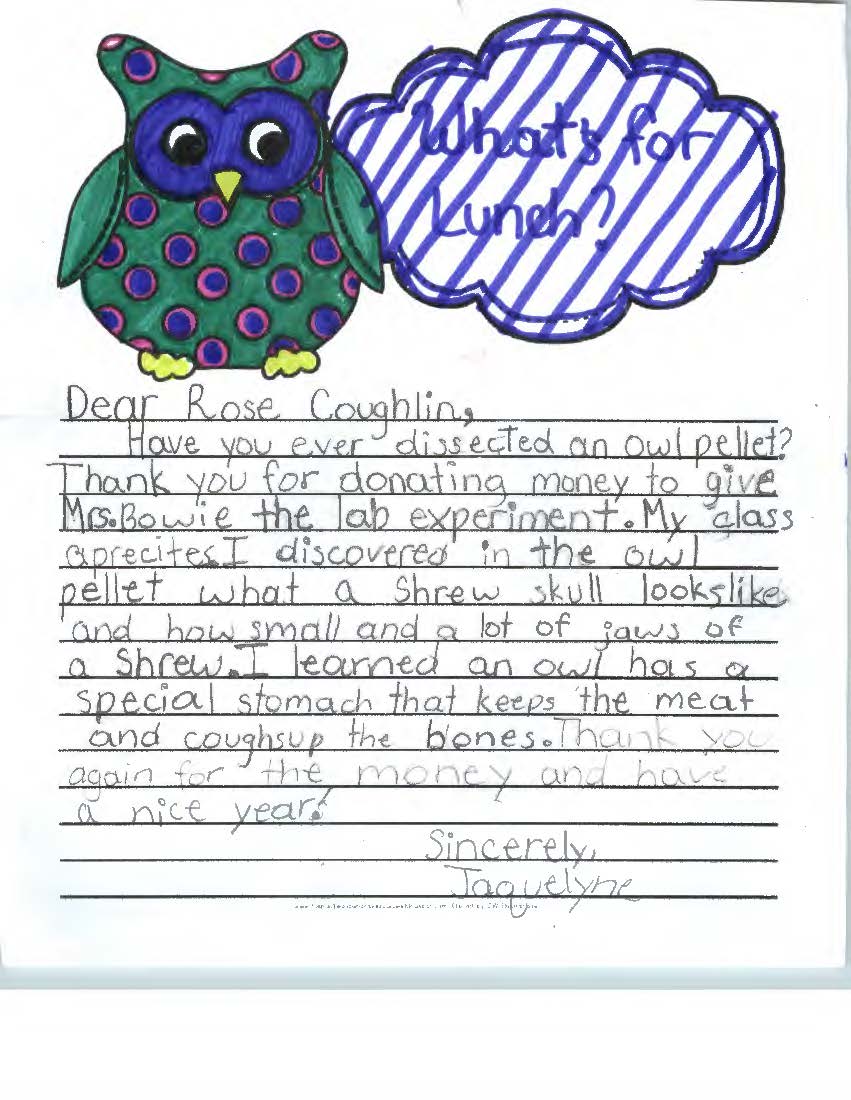 What's for
Lunch?
Dear Rose Coughlin,
Have you ever dissected an owl pellet?
Thank you for donating money to give
Mrs. Bowie the lab experiment. My class
aprecites. I discovered in the owl
pellet what a Shrew skull looks like
and how small and a lot of jaws of
a Shrew. I learned an owl has a
special stomach that keeps the meat
and coughs up the bones. Thank you
again for the money and have
a nice year!
Sincerely,
Jaquelyne